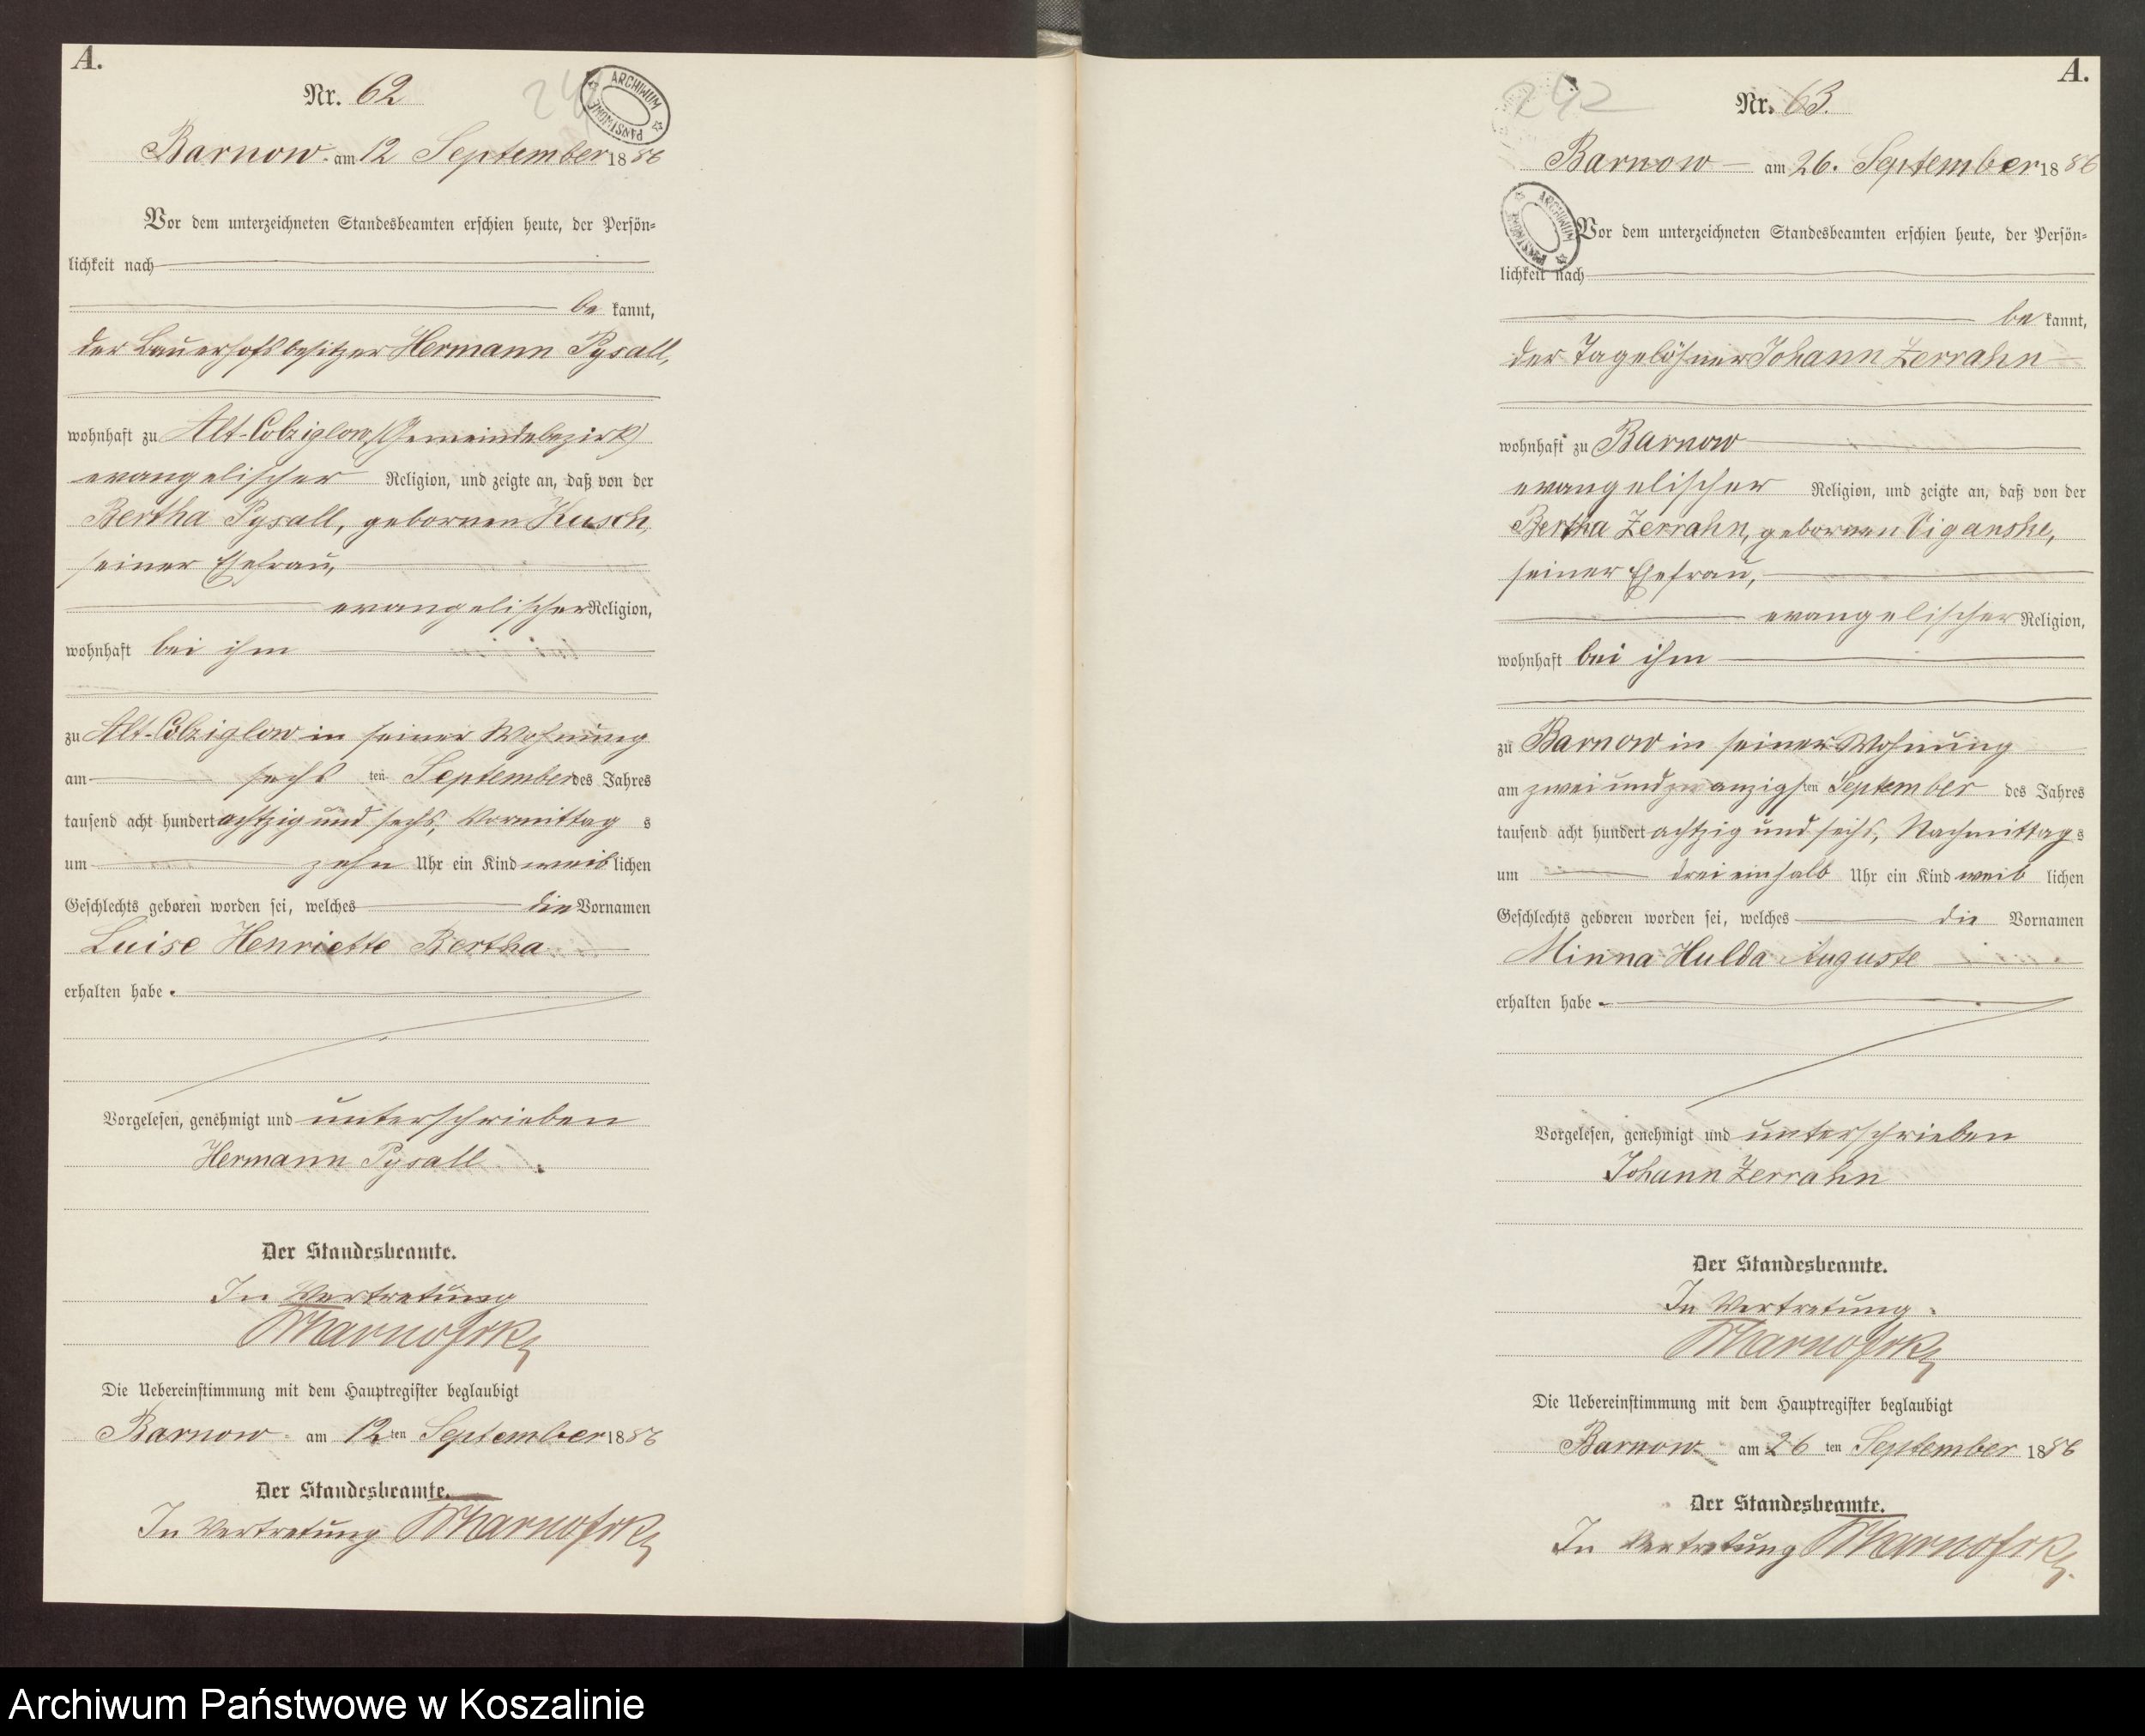 A.
Nr. 62
ARCHIWUM PAŃSTWOWE
Barnow am 12 September 1886
Vor dem unterzeichneten Standesbeamten erschien heute, der Persön-
lichkeit nach
be kannt,
der Bauerhofsbesitzer Hermann Pysall,
wohnhaft zu Alt-Colziglow (Gemeindebezirk)
evangelischer Religion, und zeigte an, daß von der
Bertha Pysall, gebornen Kusch,
seiner Ehefrau,
evangelischer Religion,
wohnhaft bei ihm
zu Alt-Colziglow in seiner Wohnung
am sechs ten September des Jahres
tausend acht hundert achtzig und sechs, Vormittag s
um zehn Uhr ein Kind weib lichen
Geschlechts geboren worden sei, welches die Vornamen
Luise Henriette Bertha
erhalten habe.
Vorgelesen, genehmigt und unterschrieben
Hermann Pysall.
Der Standesbeamte.
In Vertretung
Die Uebereinstimmung mit dem Hauptregister beglaubigt
Barnow am 12ten September 1886
Der Standesbeamte.
In Vertretung
A.
242
Nr. 63.
Barnow am 26. September 1886
ARCHIWUM PAŃSTWOWE
Vor dem unterzeichneten Standesbeamten erschien heute, der Persön-
lichkeit nach
be kannt,
der Tagelöhner Johann Zerrahn
wohnhaft zu Barnow
evangelischer Religion, und zeigte an, daß von der
Bertha Zerrahn, gebornen Viganske,
seiner Ehefrau,
evangelischer Religion,
wohnhaft bei ihm
zu Barnow in seiner Wohnung
am zweiundzwanzigsten September des Jahres
tausend acht hundert achtzig und sechs, Nachmittag s
um drei einhalb Uhr ein Kind weib lichen
Geschlechts geboren worden sei, welches die Vornamen
Minna Hulda Auguste
erhalten habe.
Vorgelesen, genehmigt und unterschrieben
Johann Zerrahn
Der Standesbeamte.
In Vertretung.
Die Uebereinstimmung mit dem Hauptregister beglaubigt
Barnow am 26 ten September 1886
Der Standesbeamte.
In Vertretung
Archiwum Państwowe w Koszalinie